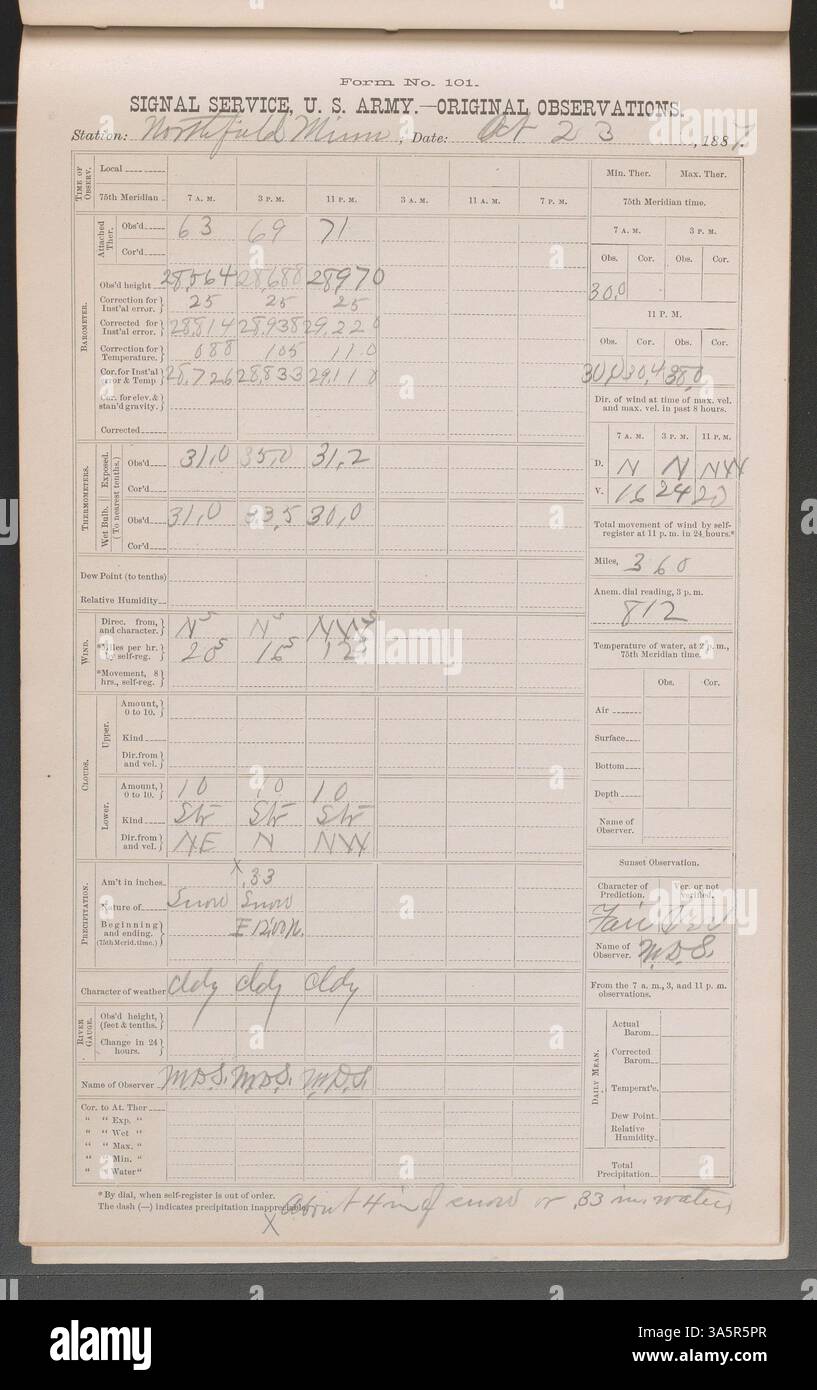 Form No. 101.
SIGNAL SERVICE, U. S. ARMY.—ORIGINAL OBSERVATIONS.
Station: Northfield Minn, Date: Oct 23, 1887.
TIME OF OBSERV.
Local
75th Meridian 7 A. M. 3 P. M. 11 P. M. 3 A. M. 11 A. M. 7 P. M.
BAROMETER.
Attached Ther.
Obs'd 63 69 71
Cor'd
Obs'd height 28,564 28,688 28,970
Correction for Inst'al error. 25 25 25
Corrected for Inst'al error. 28,814 28,938 29,220
Correction for Temperature. 088 105 110
Cor. for Inst'al error & Temp 28,726 28,833 29,110
Cor. for elev. & stan'd gravity.
Corrected
THERMOMETERS.
(To nearest tenths.)
Exposed.
Obs'd 31,0 35,0 31,2
Cor'd
Wet Bulb.
Obs'd 31,0 33,5 30,0
Cor'd
Dew Point (to tenths)
Relative Humidity
WIND.
Direc. from, and character. N s N s NW s
*Miles per hr. by self-reg. 20 s 16 s 12 s
*Movement, 8 hrs., self-reg.
CLOUDS.
Upper.
Amount, 0 to 10.
Kind
Dir. from and vel.
Lower.
Amount, 0 to 10. 10 10 10
Kind Str Str Str
Dir. from and vel. NE N NW
PRECIPITATION.
Am't in inches x .33
Nature of Snow Snow
Beginning and ending. (75th Merid. time.) E 12:00 n.
Character of weather Cldy Cldy Cldy
RIVER GAUGE.
Obs'd height, (feet & tenths.)
Change in 24 hours.
Name of Observer M.D.S. M.D.S. M.D.S.
Cor. to At. Ther
" " Exp. "
" " Wet "
" " Max. "
" " Min. "
" " Water "
Min. Ther. Max. Ther.
75th Meridian time.
7 A. M. 3 P. M.
Obs. Cor. Obs. Cor.
30,0
11 P. M.
Obs. Cor. Obs. Cor.
30,0 30,4 38,0
Dir. of wind at time of max. vel. and max. vel. in past 8 hours.
7 A. M. 3 P. M. 11 P. M.
D. N N NW
V. 16 24 20
Total movement of wind by self-register at 11 p. m. in 24 hours.*
Miles, 360
Anem. dial reading, 3 p. m.
812
Temperature of water, at 2 p. m., 75th Meridian time.
Obs. Cor.
Air
Surface
Bottom
Depth
Name of Observer.
Sunset Observation.
Character of Prediction. Ver. or not verified.
Fair
Name of Observer. M.D.S.
From the 7 a. m., 3, and 11 p. m. observations.
DAILY MEAN.
Actual Barom
Corrected Barom
Temperat'e.
Dew Point
Relative Humidity
Total Precipitation
* By dial, when self-register is out of order.
The dash (—) indicates precipitation inappreciable.
x About 4 in of snow or .33 in. water
alamy
2A5R5PR